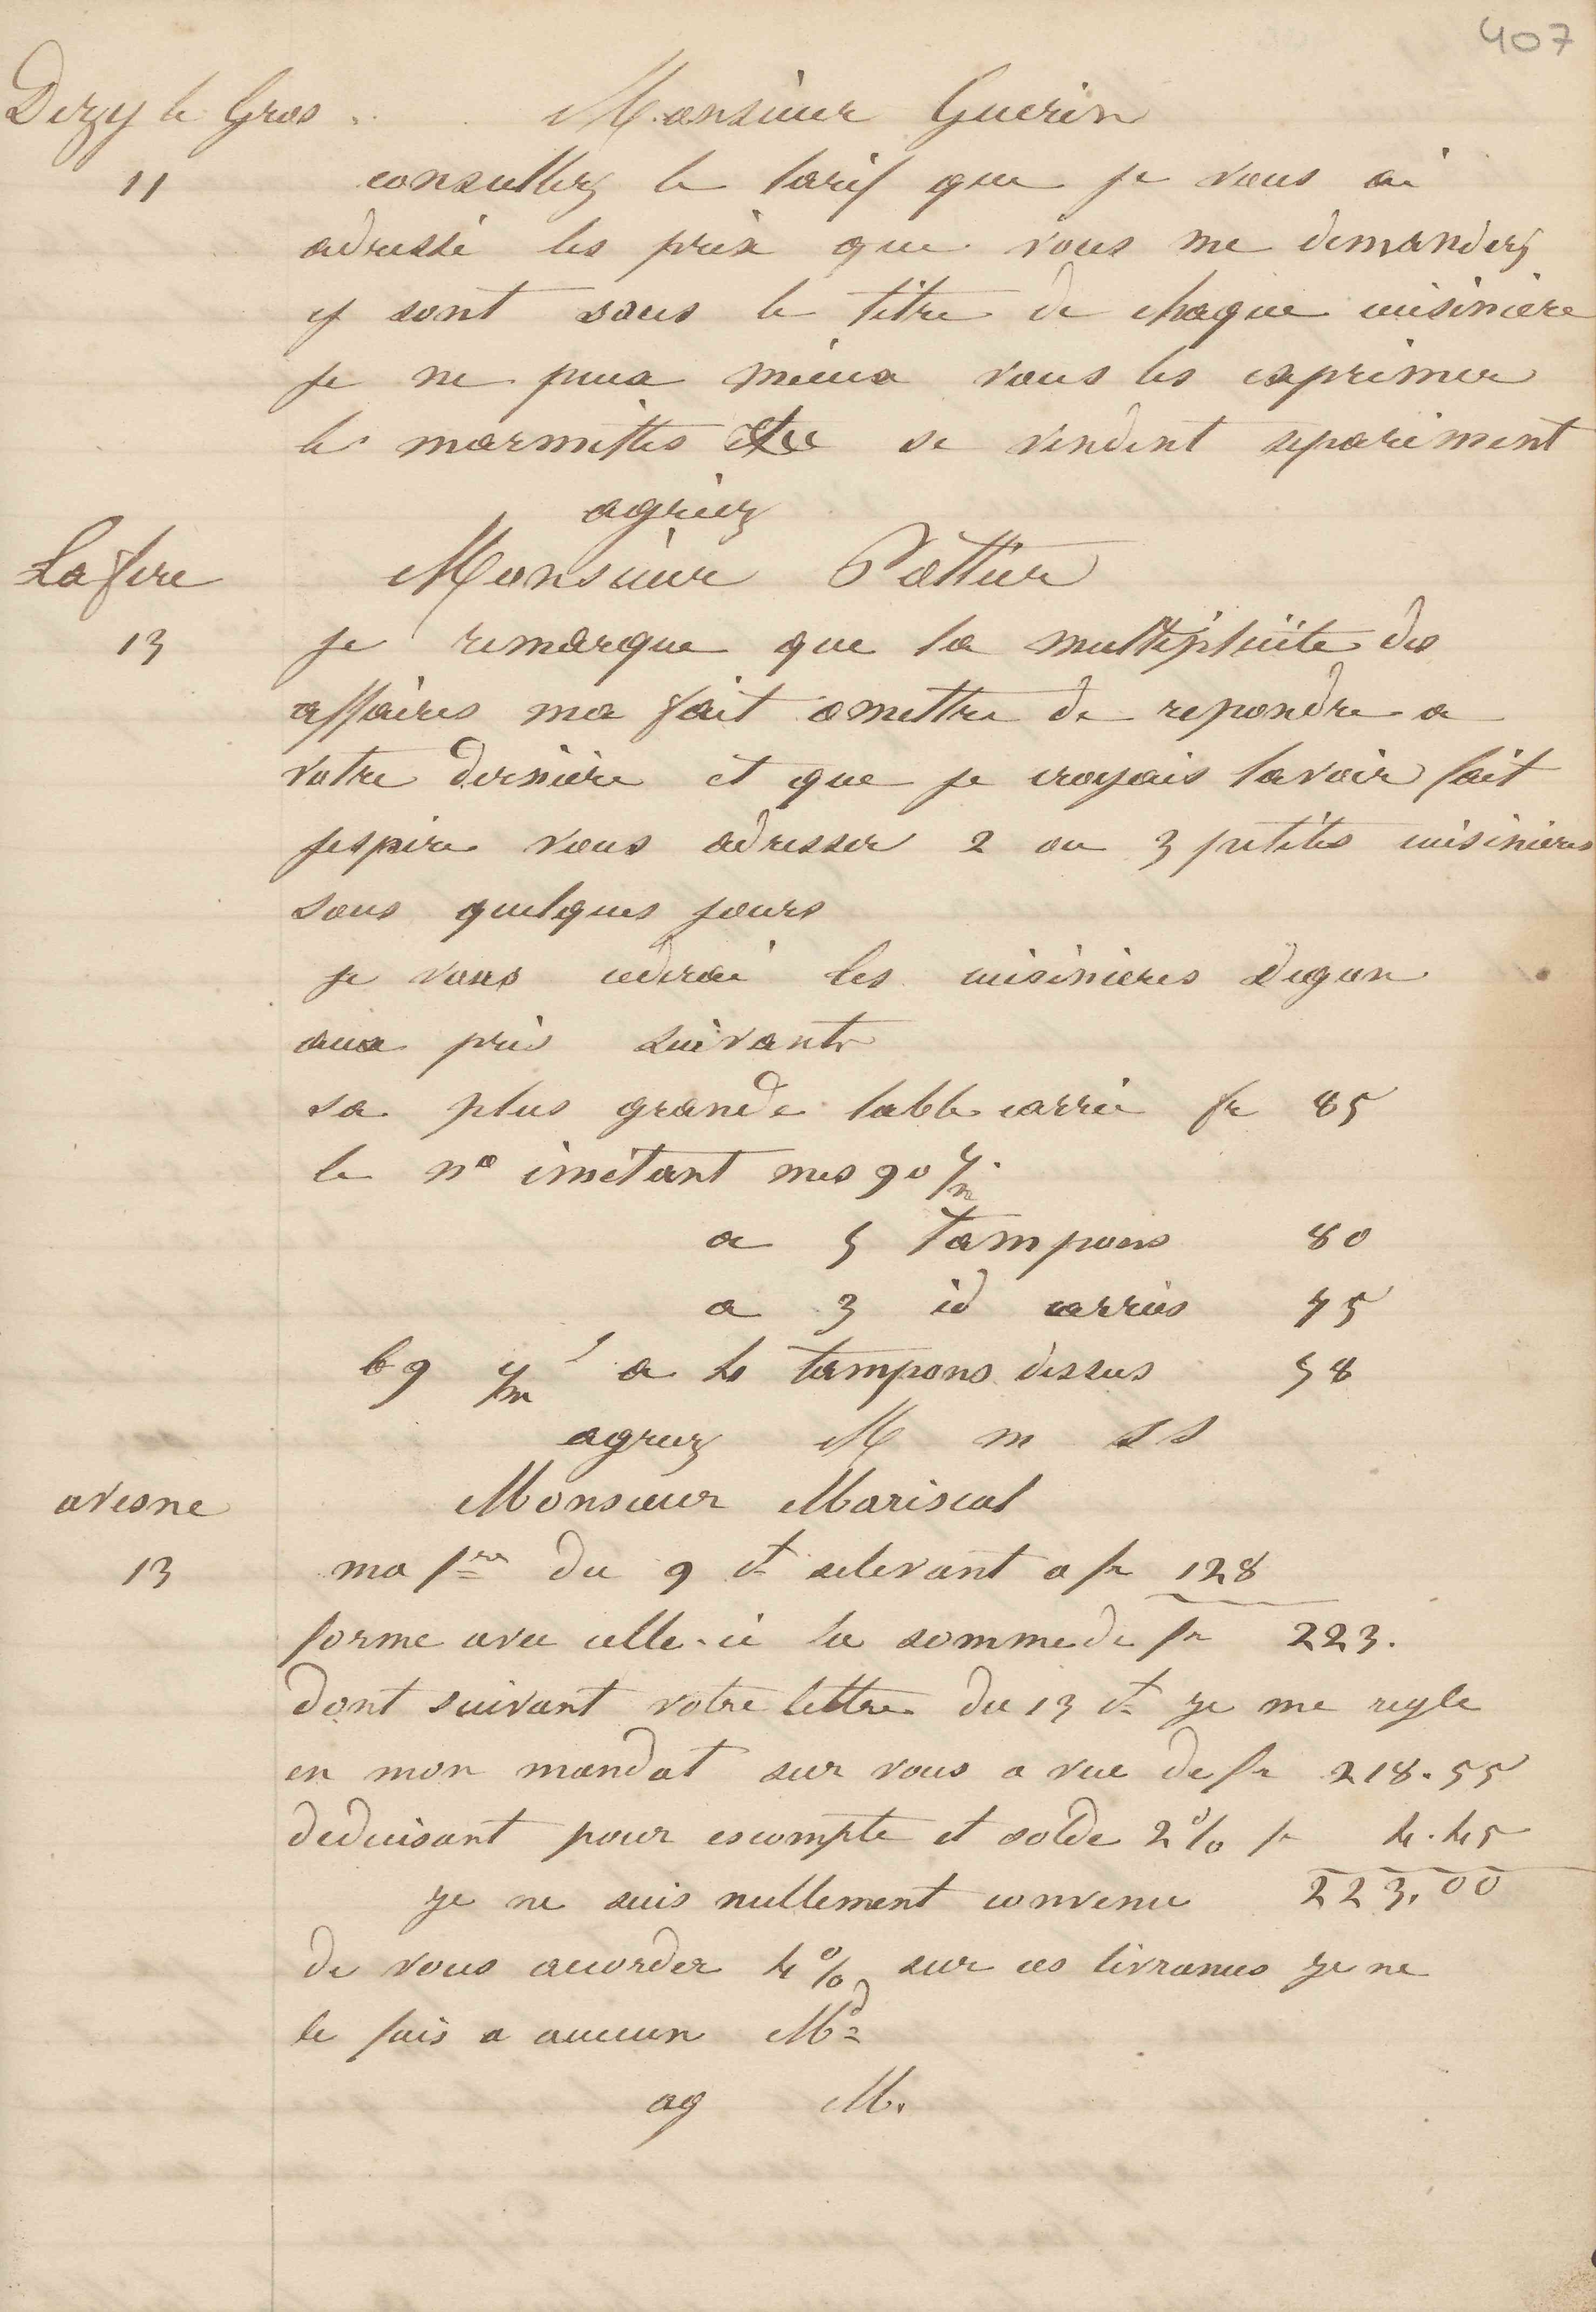 407
Dizy le Gros Monsieur Guerin
11 consultez le tarif que je vous ai
adressé les prix que vous me demandez
y sont sous le titre de chaque cuisiniere
je ne peux mieux vous les exprimer
les marmittes se vendent separement
agréez
La fere Monsieur
13 je remarque que la multiplicite des
affaires ma fait omettre de repondre a
votre derniere et que je croyais lavoir fait
jespere vous adresser 2 ou 3 petites cuisinieres
sous quelques jours
je vous cederai les cuisinieres
aux prix suivants
sa plus grande table carrée fr 85
le no imitant mes 90 c/m
a 5 tampons 80
a 3 id carrées 75
69 c/m a 4 tampons dessus 58
agreez M m s s
avesne Monsieur Mariscal
13 ma fre du 9 ct selevant a fr 128
forme avec celle-ci la somme de fr 223.
dont suivant votre lettre du 13 ct je me regle
en mon mandat sur vous a vue de fr 218.55
deduisant pour escompte et solde 2% fr 4.45
je ne suis nullement convenu 223,00
de vous accorder 4% sur ces livrances je ne
le fais a aucun Md
ag M.